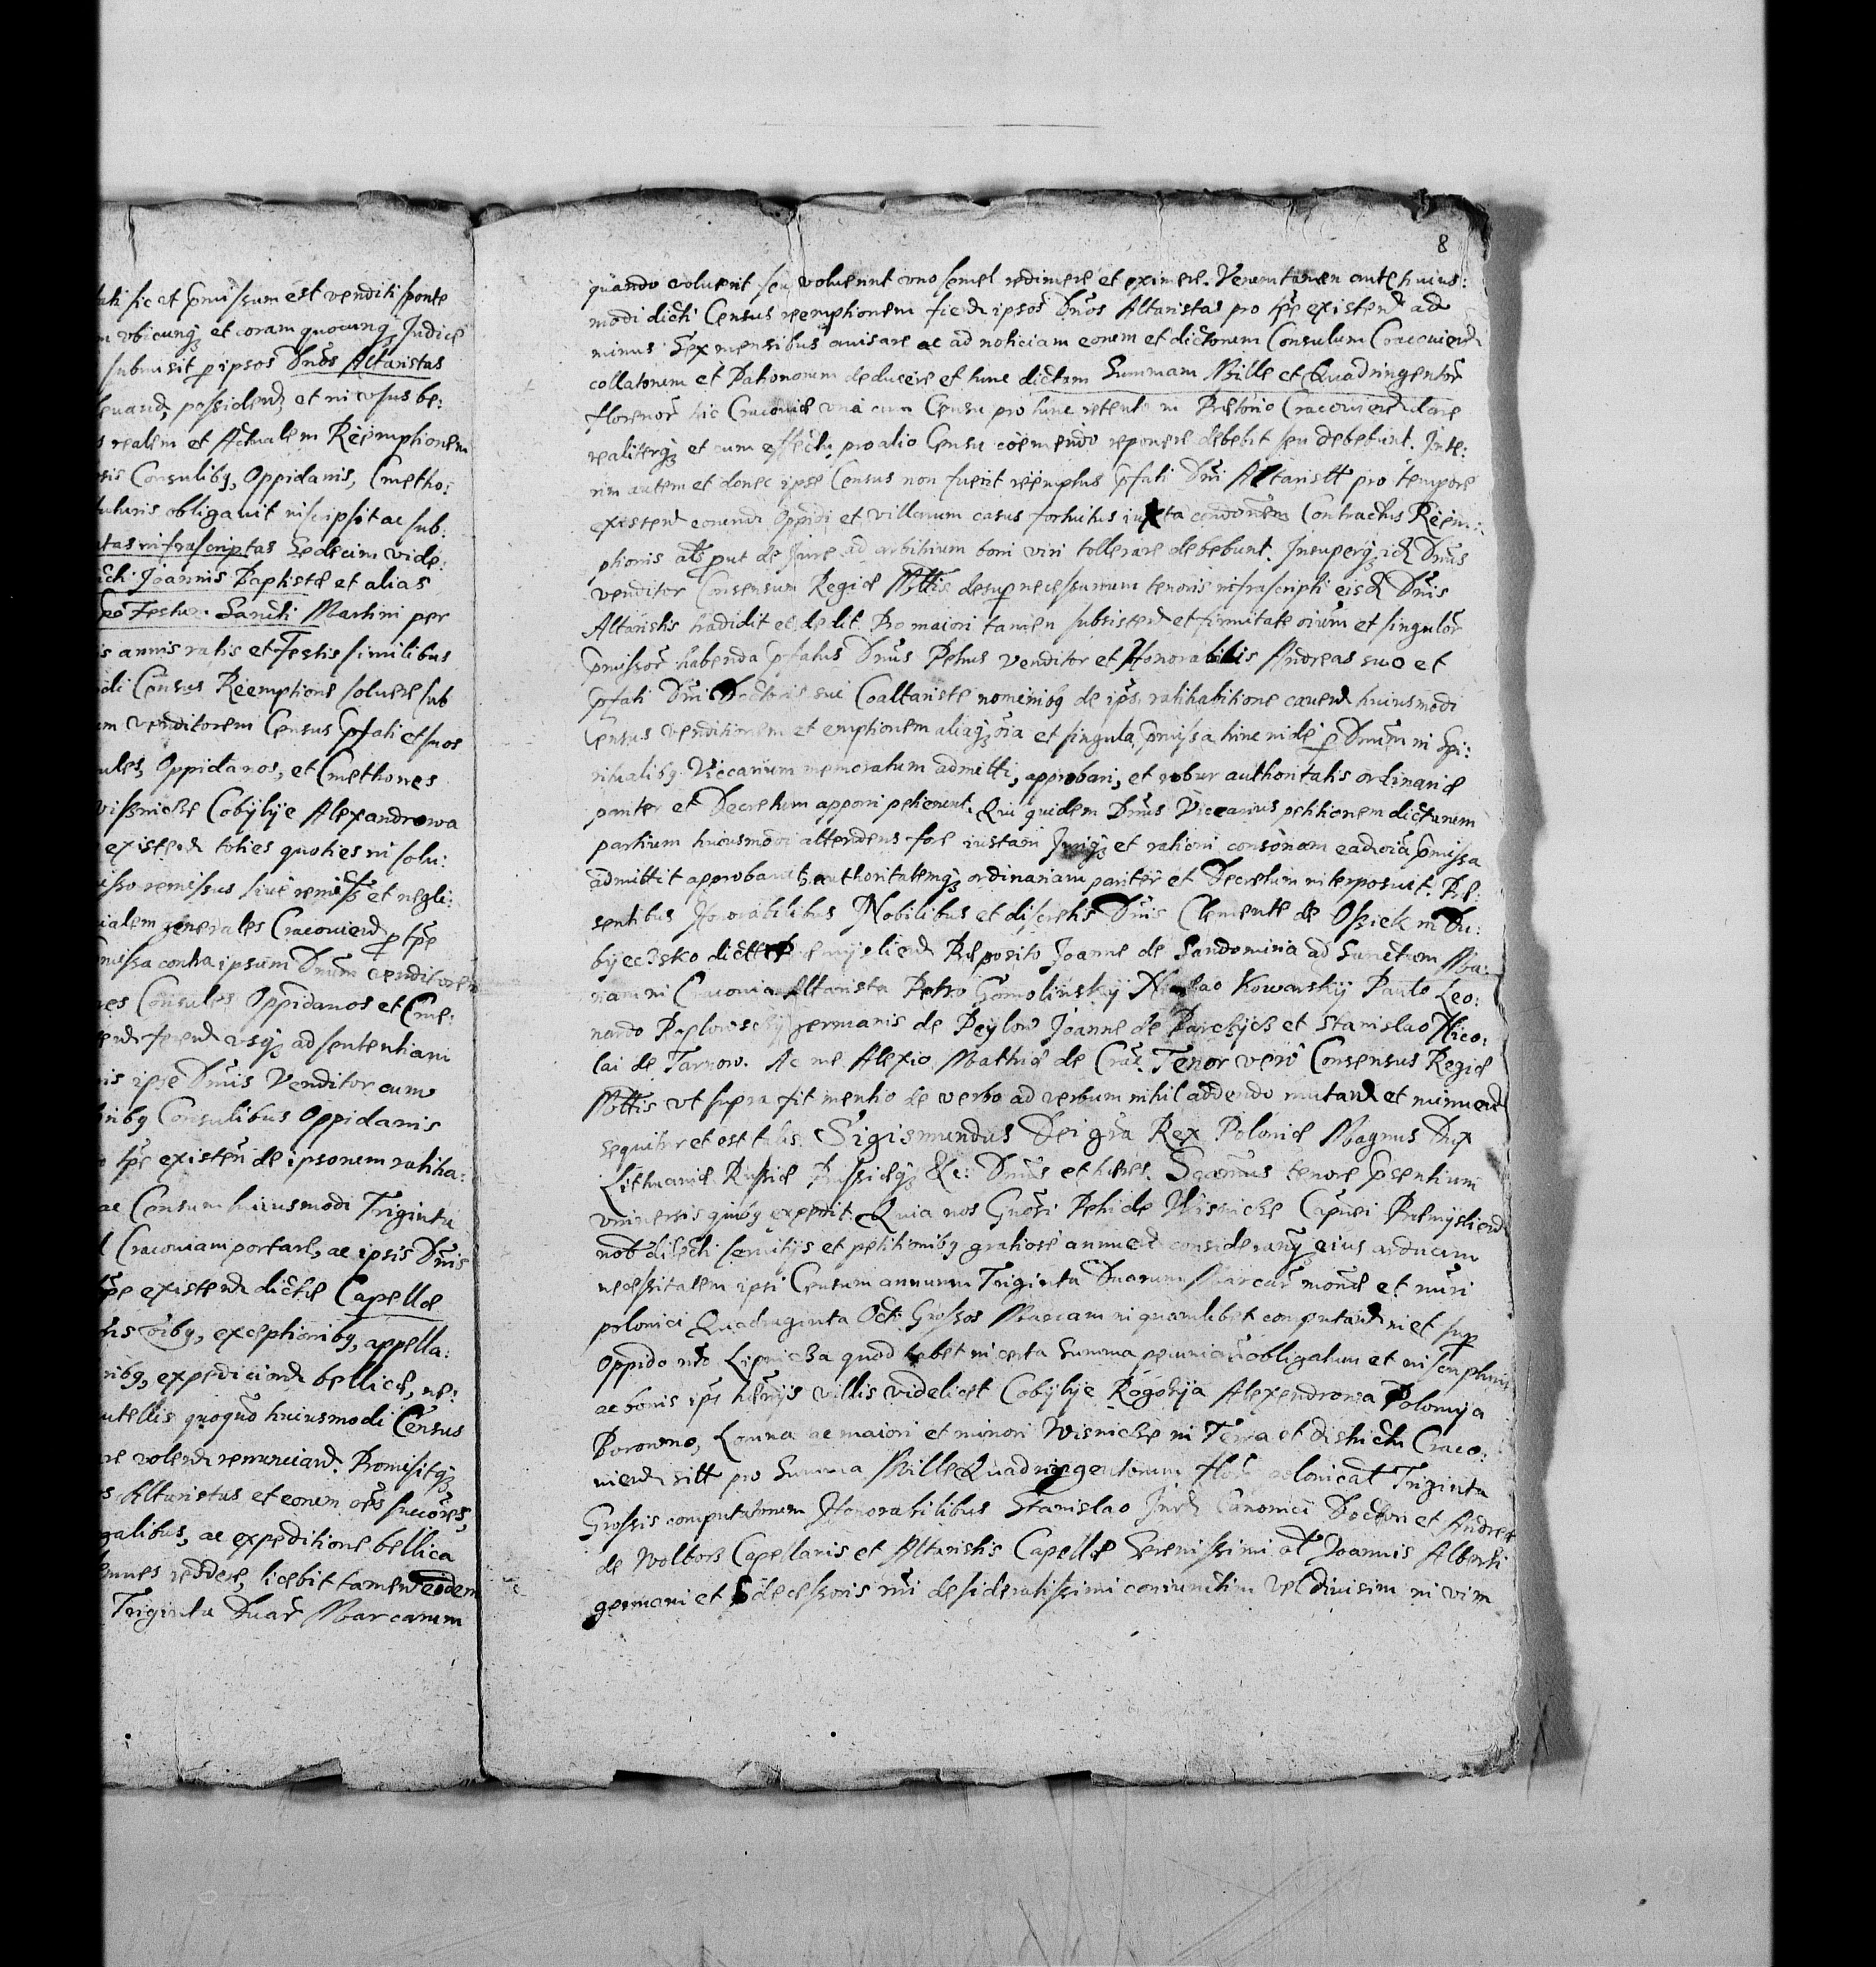 tati sic et pmissum est venditi sponte
n vbicunqz et coram quocunqz Judice
submisit p ipsos Dnos Altaristas
leuand, possidend, et in vsus be:
s realem et Actualem Reemptionem
sis Consulibq, Oppidanis, Cmetho:
futuris obligauit inscripsit ac sub:
tas infrascriptas Sedecim vide:
cti Joannis Baptistæ et alias
Festum Sancti Martini per
is annis ratis et Festis similibus
odi Census Reemptione soluere sub
um venditorem Census pfati et suos
ules, Oppidanos, et Cmethones
Wissnicze Cobÿlÿe Alexandrowa
existend toties quoties in solu:
isso remissus siue remissi et negli:
cialem generales Cracouiend p tpe
missa contra ipsum Dnum venditorem
res Consules Oppidanos et Cme:
end ferend vsqz ad sententiam
is ipse Dnus Venditor cum
nibq Consulibus Oppidanis
o tpe existen de ipsorum ratiha:
ac Censum huiusmodi Triginta
d Cracouiam portare, ac ipsis Dnis
tpe existend dictæ Capellæ
tis oibq, exceptionibq, appella:
nibq, expedicion bellicæ, ne:
utellis quoquo huiusmodi Census
re volend renunciand. Promisitqz
s Altaristas et eorum oes succores,
galibus, ac expeditione bellica
emnes reddere, licebit tamen eidem
Triginta Duar Marcarum
8
quando voluerit seu voluerint vno semel redimere et eximere. Verumtamen ante huius:
modi dicti Census reemptionem fiend ipsos Dnos Altaristas pro tpe existend ad
minus Sex mensibus auisare ac ad noticiam eorum et dictorum Consulum Cracouiend
collatorum et Patronorum deducere et tunc dictam Summam Mille et Quadringentor
florenor hic Cracouiæ vna cum Censu pro tunc retento in Prætorio Cracouiend dare
realiterqz et cum effectu, pro alio Censu coemendo reponere debebit seu debebunt. Inte:
rim autem et donec ipse Census non fuerit reemptus pfati Dni Altaristæ pro tempore
existend eorund Oppidi et villarum casus fortuitus iuxta condonem Contractus Reem:
ptionis als put de Jure ad arbitrium boni viri tollerare debebunt. Insuperqz id Dnus
venditor Consensum Regiæ Mttis desup necessarium tenoris infrascripti eisd Dnis
Altaristis tradidit et dedit. Pro maiori tamen subsistend et firmitate oium et singulor
pmissor habenda pfatus Dnus Petrus venditor et Honorabilis Andreas suo et
pfati Dni Doctoris sui Coaltaristæ nominibq de ipsi ratihabitione cauend huiusmodi
Census venditionem et emptionem aliaqz oia et singula pmissa hinc inde p Dnum in Spi:
ritualibq Viccarium memoratum admitti, approbari, et robur authoritatis ordinariæ
pariter et Decretum apponi petierunt. Qui quidem Dnus Viccarius petitionem dictarum
partium huiusmodi attendens fore iustam Juriqz et rationi consonam ead oia pmissa
admittit approbauit authoritatemqz ordinariam pariter et Decretum interposuit. Præ:
sentibus Honorabilibus Nobilibus et discretis Dnis Clemente de Ossiek in Du:
byeczsko Præposito Joanne de Sandomiria ad Sanctam Ma:
riam in Cracouia Altarista Petro Gomolinskÿ Kowarskÿ Paulo Leo:
nardo germanis de Peylow Joanne de et Stanislao Nico:
lai de Tarnow. Ac me Alexio Mathiæ de Crac. Tenor vero Consensus Regiæ
Mttis vt supra fit mentio de verbo ad verbum nihil addendo mutand et minuend
sequitur et est talis. Sigismundus Dei gra Rex Poloniæ Magnus Dux
Lithuaniæ Russiæ Prussiæqz &c: Dnus et hæres. Sgamus tenore psentium
vniuersis quibq expedit. Quia nos Gnosi Petri de Wisnicze Capnei Præmÿsliend
nob dilecti seruitÿs et petitionibq gratiose annuend considerantqz eius arduam
necessitatem ipsi Censum annuum Triginta Duarum Marcar monæ et nuri
polonici Quadraginta Octo Grossos Marcam in quamlibet computand in et sup
Oppido nro Lipnicza quod habet in certa Summa pecuniar obligatum et inscriptum
ac bonis ips hærijs villis videlicet Cobÿlÿe Rogozÿa Alexandrowa Polomÿa
Borowno, Lomna ac maiori et minori Wisnicze in Terra et districtu Craco:
uiend sitt pro Summa Mille Quadringentorum flor polonical Triginta
Grossis computatorum Honorabilibus Stanislao Jurd Canonici Doctori et Andreæ
de Wolbors Capellanis et Altaristis Capellæ Serenissimi ol Joannis Alberti
germani et pdecessoris nri desideratissimi coniunctim vel diuisim in vim